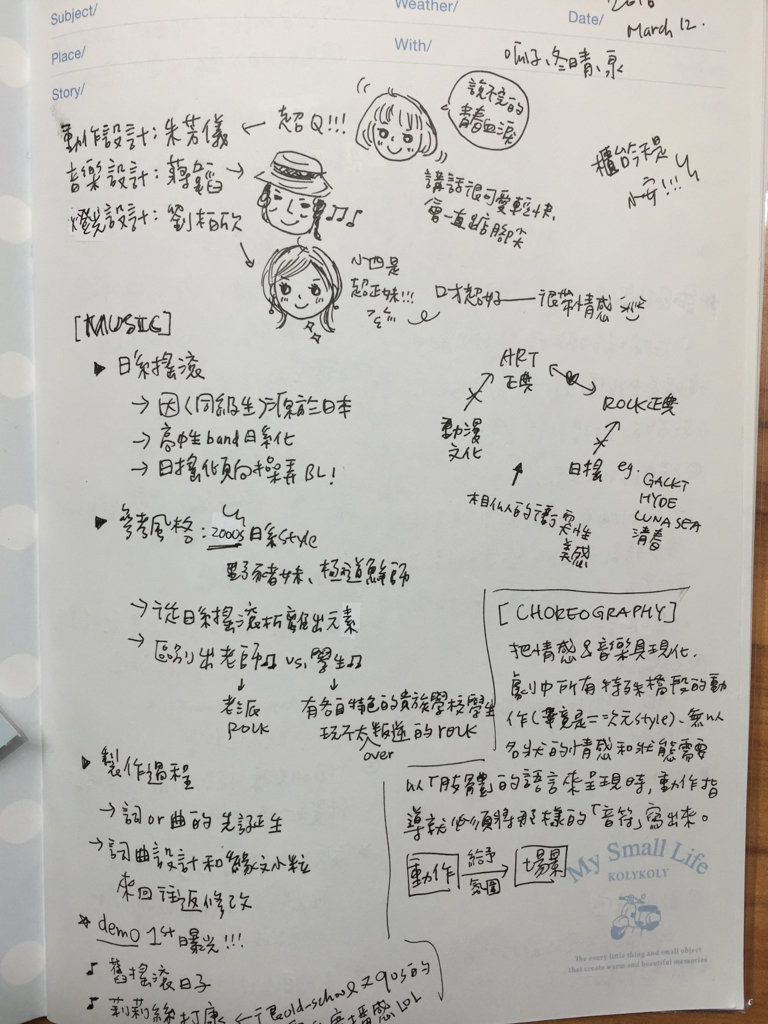 Subject/
Weather/
Date/
2016
March 12.
Place/
With/
呱子、冬晴、泉
Story/
動作設計：朱芳儀 ← 超Q!!!
說不完的
青春血淚
音樂設計：蔣韜 →
燈光設計：劉柏欣
講話很可愛輕快
會一直踮腳尖
櫃台是
小安!!!
小四是
超正妹!!!
口才超好 — 很帶情感
[MUSIC]
▶ 日系搖滾
→ 因〈同級生〉源於日本
→ 高中生band日系化
→ 日搖傾向操弄BL!
ART
正典
ROCK正典
動漫
文化
日搖 eg.
GACKT
HYDE
LUNA SEA
清春
相似的
美感
▶ 參考風格：2000s日系style
野豬妹、極道鮮師
→ 從日系搖滾拆離出元素
→ 區別出老師♫ vs. 學生♫
老派
ROCK
有各自特色的貴族學校學生
玩不太叛逆的rock
over
[CHOREOGRAPHY]
把情感&音樂具現化.
劇中所有特殊橋段的動
作(畢竟是二次元style)、無以
名狀的情感和狀態需要
以「肢體」的語言來呈現時，動作指
導就必須將那樣的「音符」寫出來。
動作 給予 氛圍 → 場景
▶ 製作過程
→ 詞or曲的先誕生
→ 詞曲設計和編文小粒
來回往返修改
* demo 1st曝光!!!
♪ 舊搖滾日子
♪ 莉莉絲打康 ← 很old-school 90s的
LOL
My Small Life
KOLYKOLY
The every little thing and small object
that create warm and beautiful memories